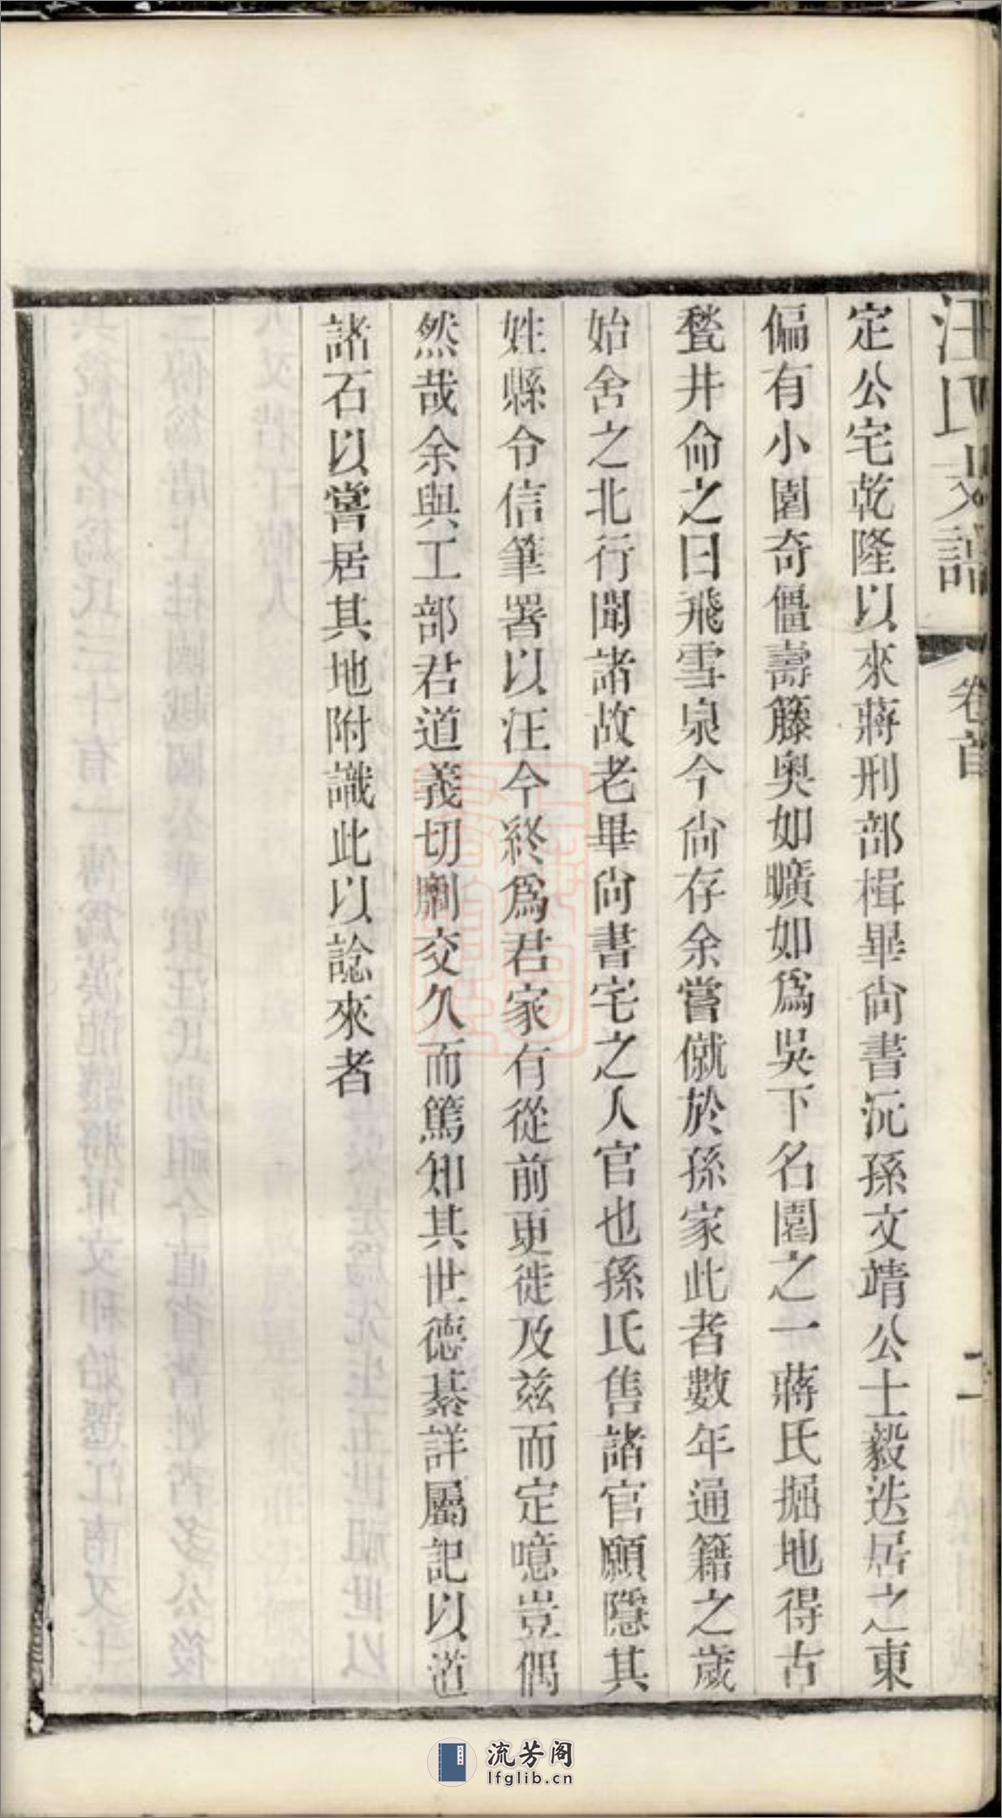 汪氏支譜 卷首
定公宅乾隆以來蔣刑部楫畢尚書沅孫文靖公士毅迭居之東
偏有小園奇僵壽籐奧如曠如爲吳下名園之一蔣氏掘地得古
甃井命之曰飛雪泉今尚存余嘗僦於孫家此者數年通籍之歲
始舍之北行聞諸故老畢尚書宅之入官也孫氏售諸官願隱其
姓縣令信筆署以汪今終爲君家有從前更徙及兹而定噫豈偶
然哉余與工部君道義切劘交久而篤知其世德綦詳屬記以道
諸石以嘗居其地附識此以諗來者
流芳阁
lfglib.cn